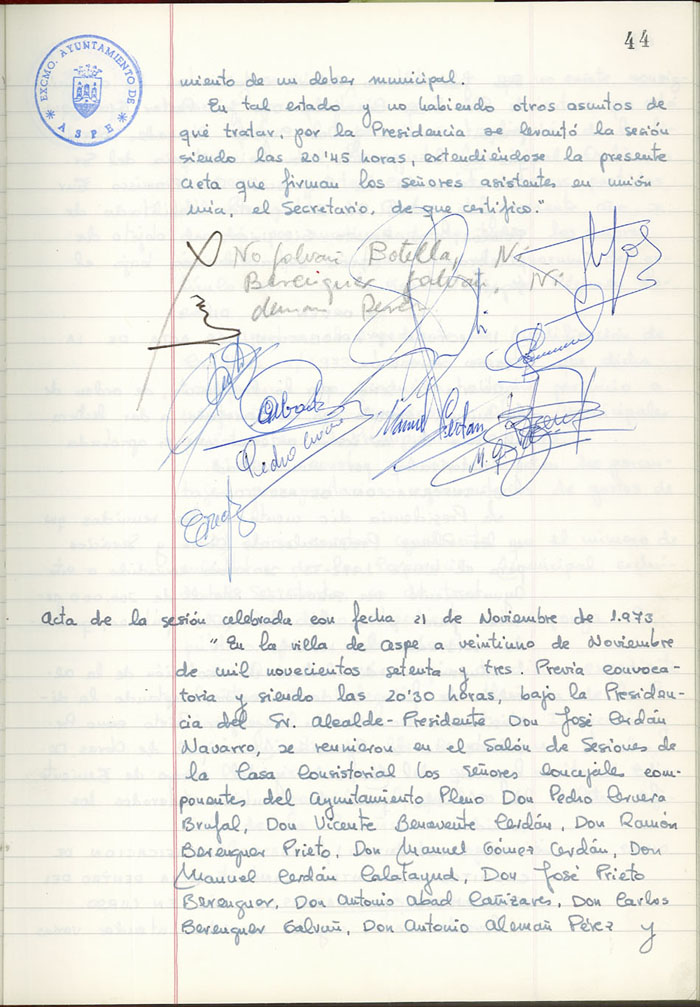 44
EXCMO. AYUNTAMIENTO DE
ASPE
miento de un deber municipal.
En tal estado y no habiendo otros asuntos de
qué tratar, por la Presidencia se levantó la sesión
siendo las 20'45 horas, extendiéndose la presente
acta que firman los señores asistentes en unión
mía, el Secretario, de que certifico."
No Galvañ Botella, Ni
Berenguer Galvañ, Ni
Pedro
Manuel Cerdán
M.
Acta de la sesión celebrada con fecha 21 de Noviembre de 1.973
"En la villa de Aspe a veintiuno de Noviembre
de mil novecientos setenta y tres. Previa convoca-
toria y siendo las 20'30 horas, bajo la Presiden-
cia del Sr. Alcalde-Presidente Don José Cerdán
Navarro, se reunieron en el Salón de Sesiones de
la Casa Consistorial los señores concejales com-
ponentes del Ayuntamiento Pleno Don Pedro Cervera
Brufal, Don Vicente Benavente Cerdán, Don Ramón
Berenguer Prieto, Don Manuel Gómez Cerdán, Don
Manuel Cerdán Calatayud, Don José Prieto
Berenguer, Don Antonio Abad Cañizares, Don Carlos
Berenguer Galvañ, Don Antonio Alemañ Pérez y